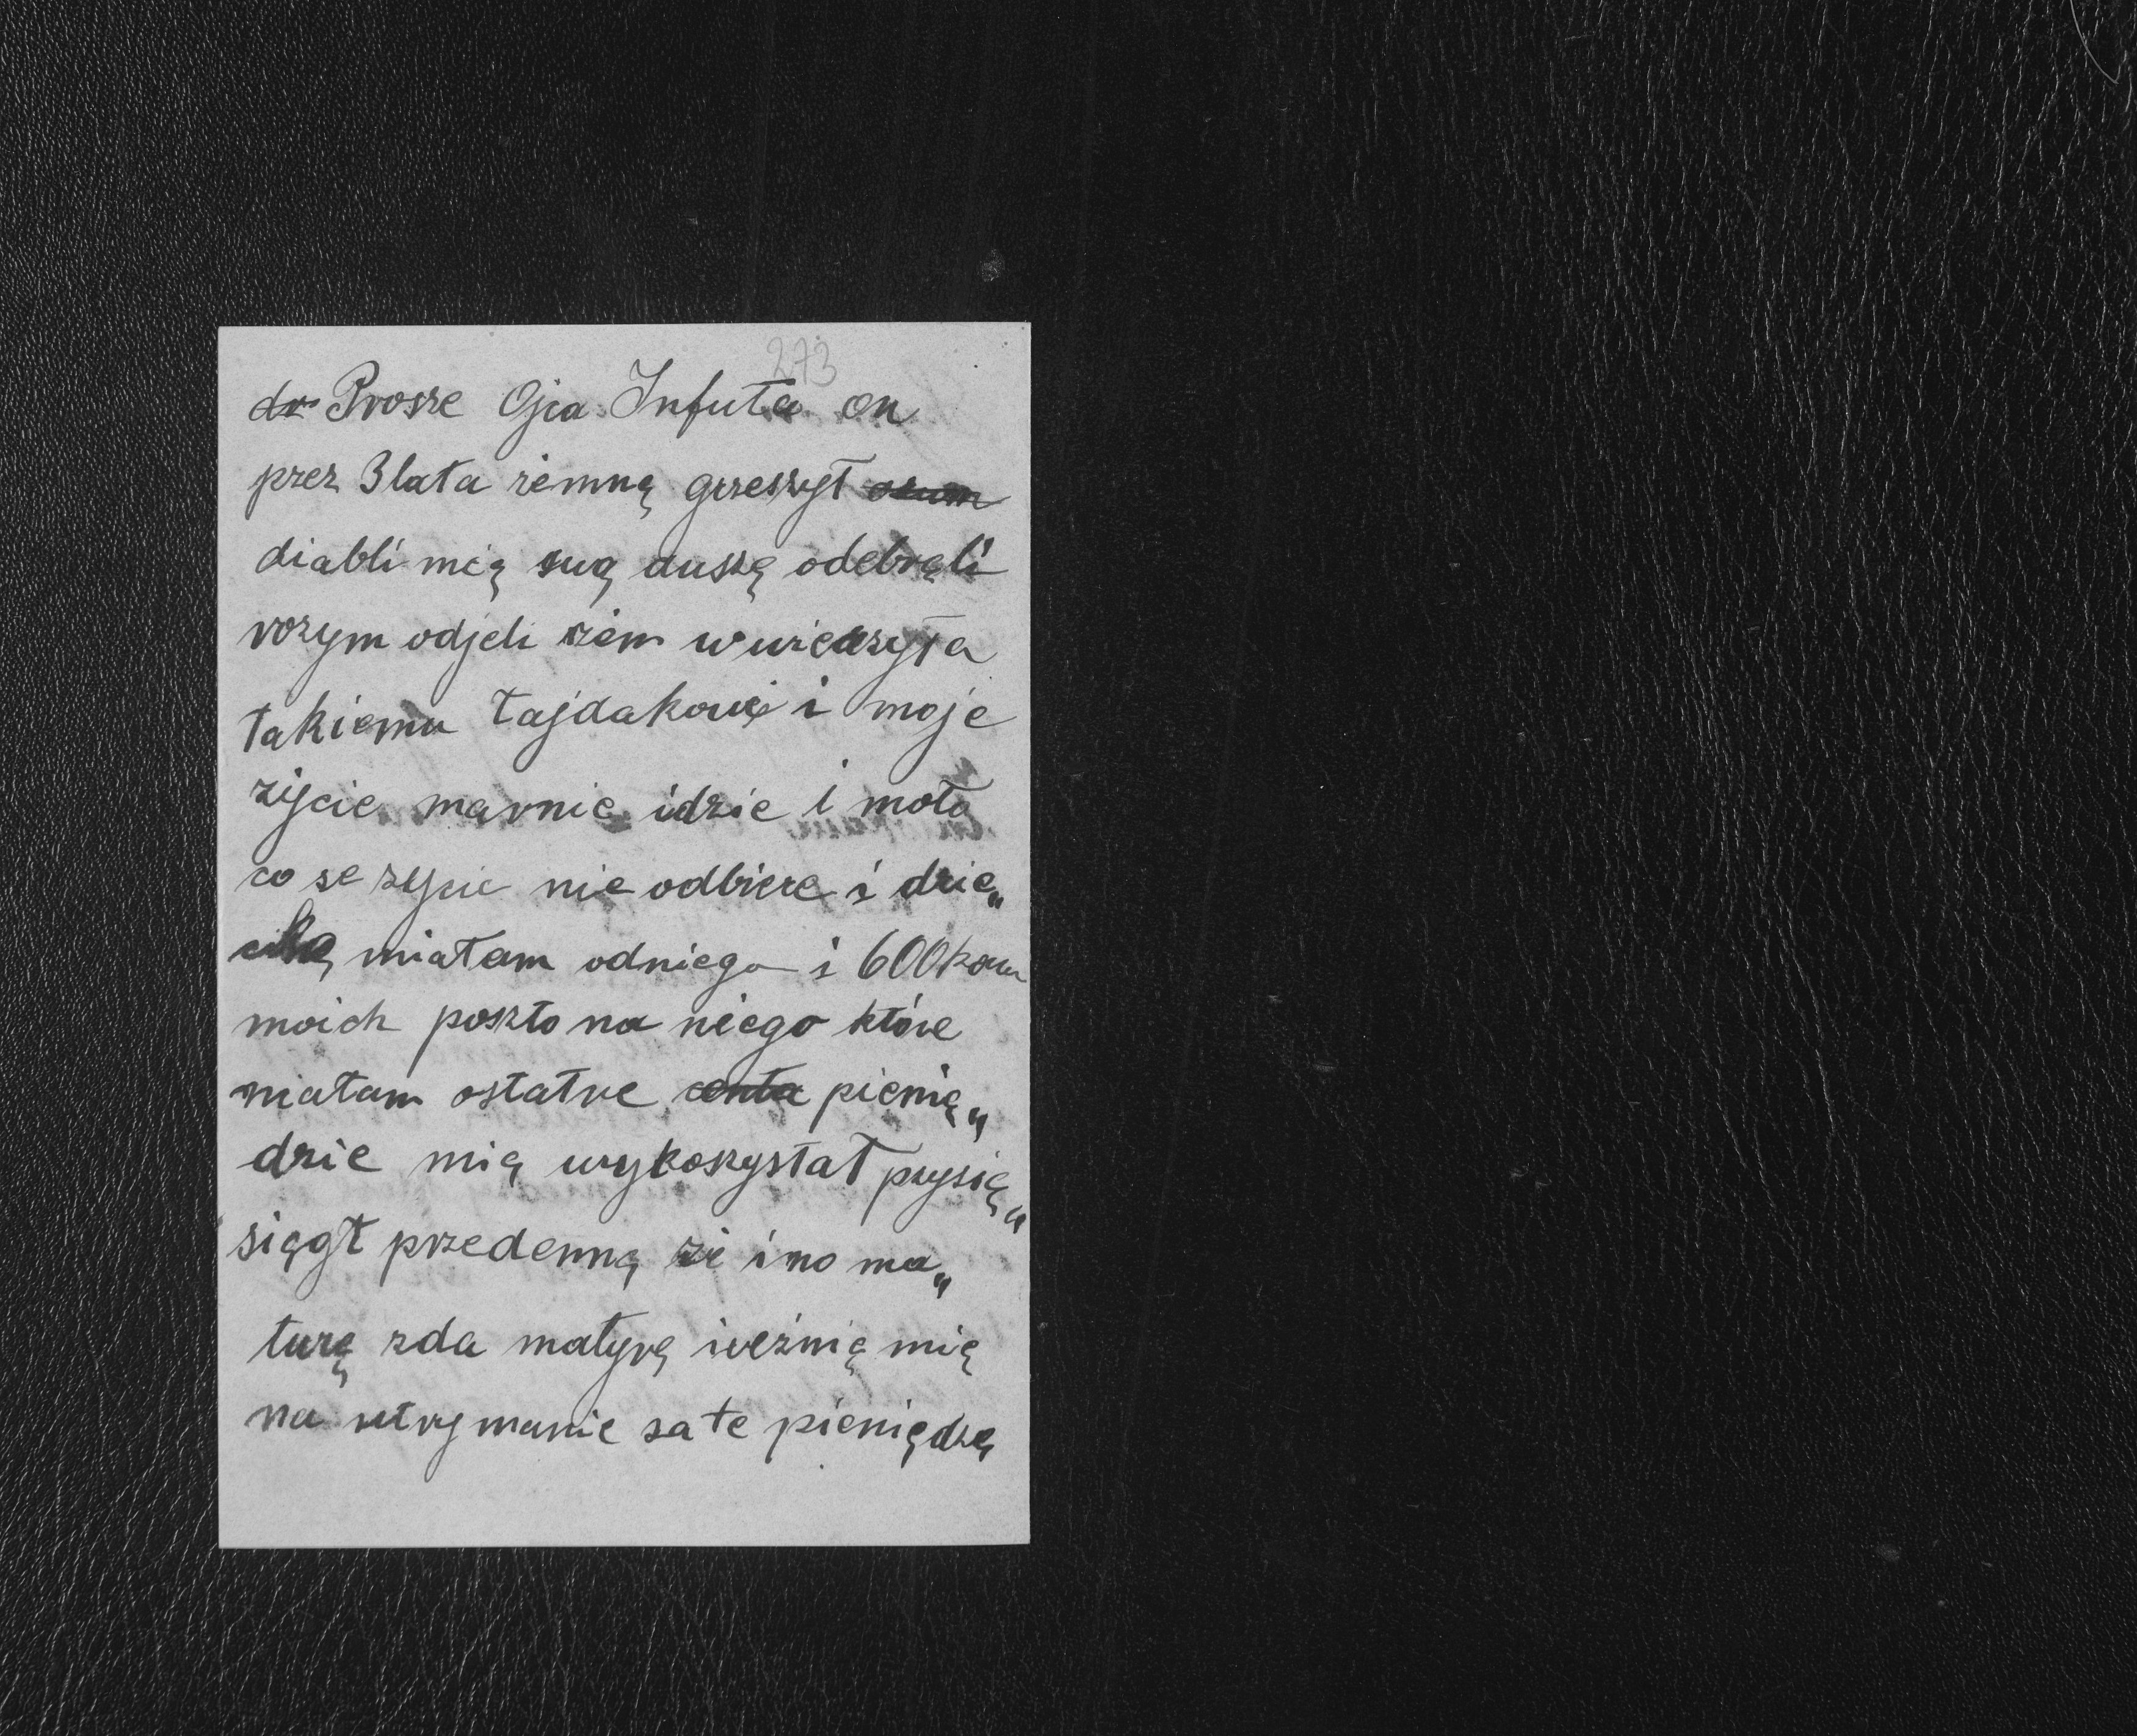 273
Prosze Ojca Infuła on
przez 3 lata zemną grzeszył
diabli mią duszę odebrali
rozym odjeli żem wwierzyła
takiemu łajdakowi i moje
życie marnie idzie i mało
co se życie nie odbiere i dzie„
cko miałam odniego i 600 koron
moich poszło na niego które
miałam ostatne centa pienią„
dzie mią wykozystał przysię„
siągł przedemną że ino ma„
turę zda matyrę weźnię mię
na utrymanie sa te pieniędzę